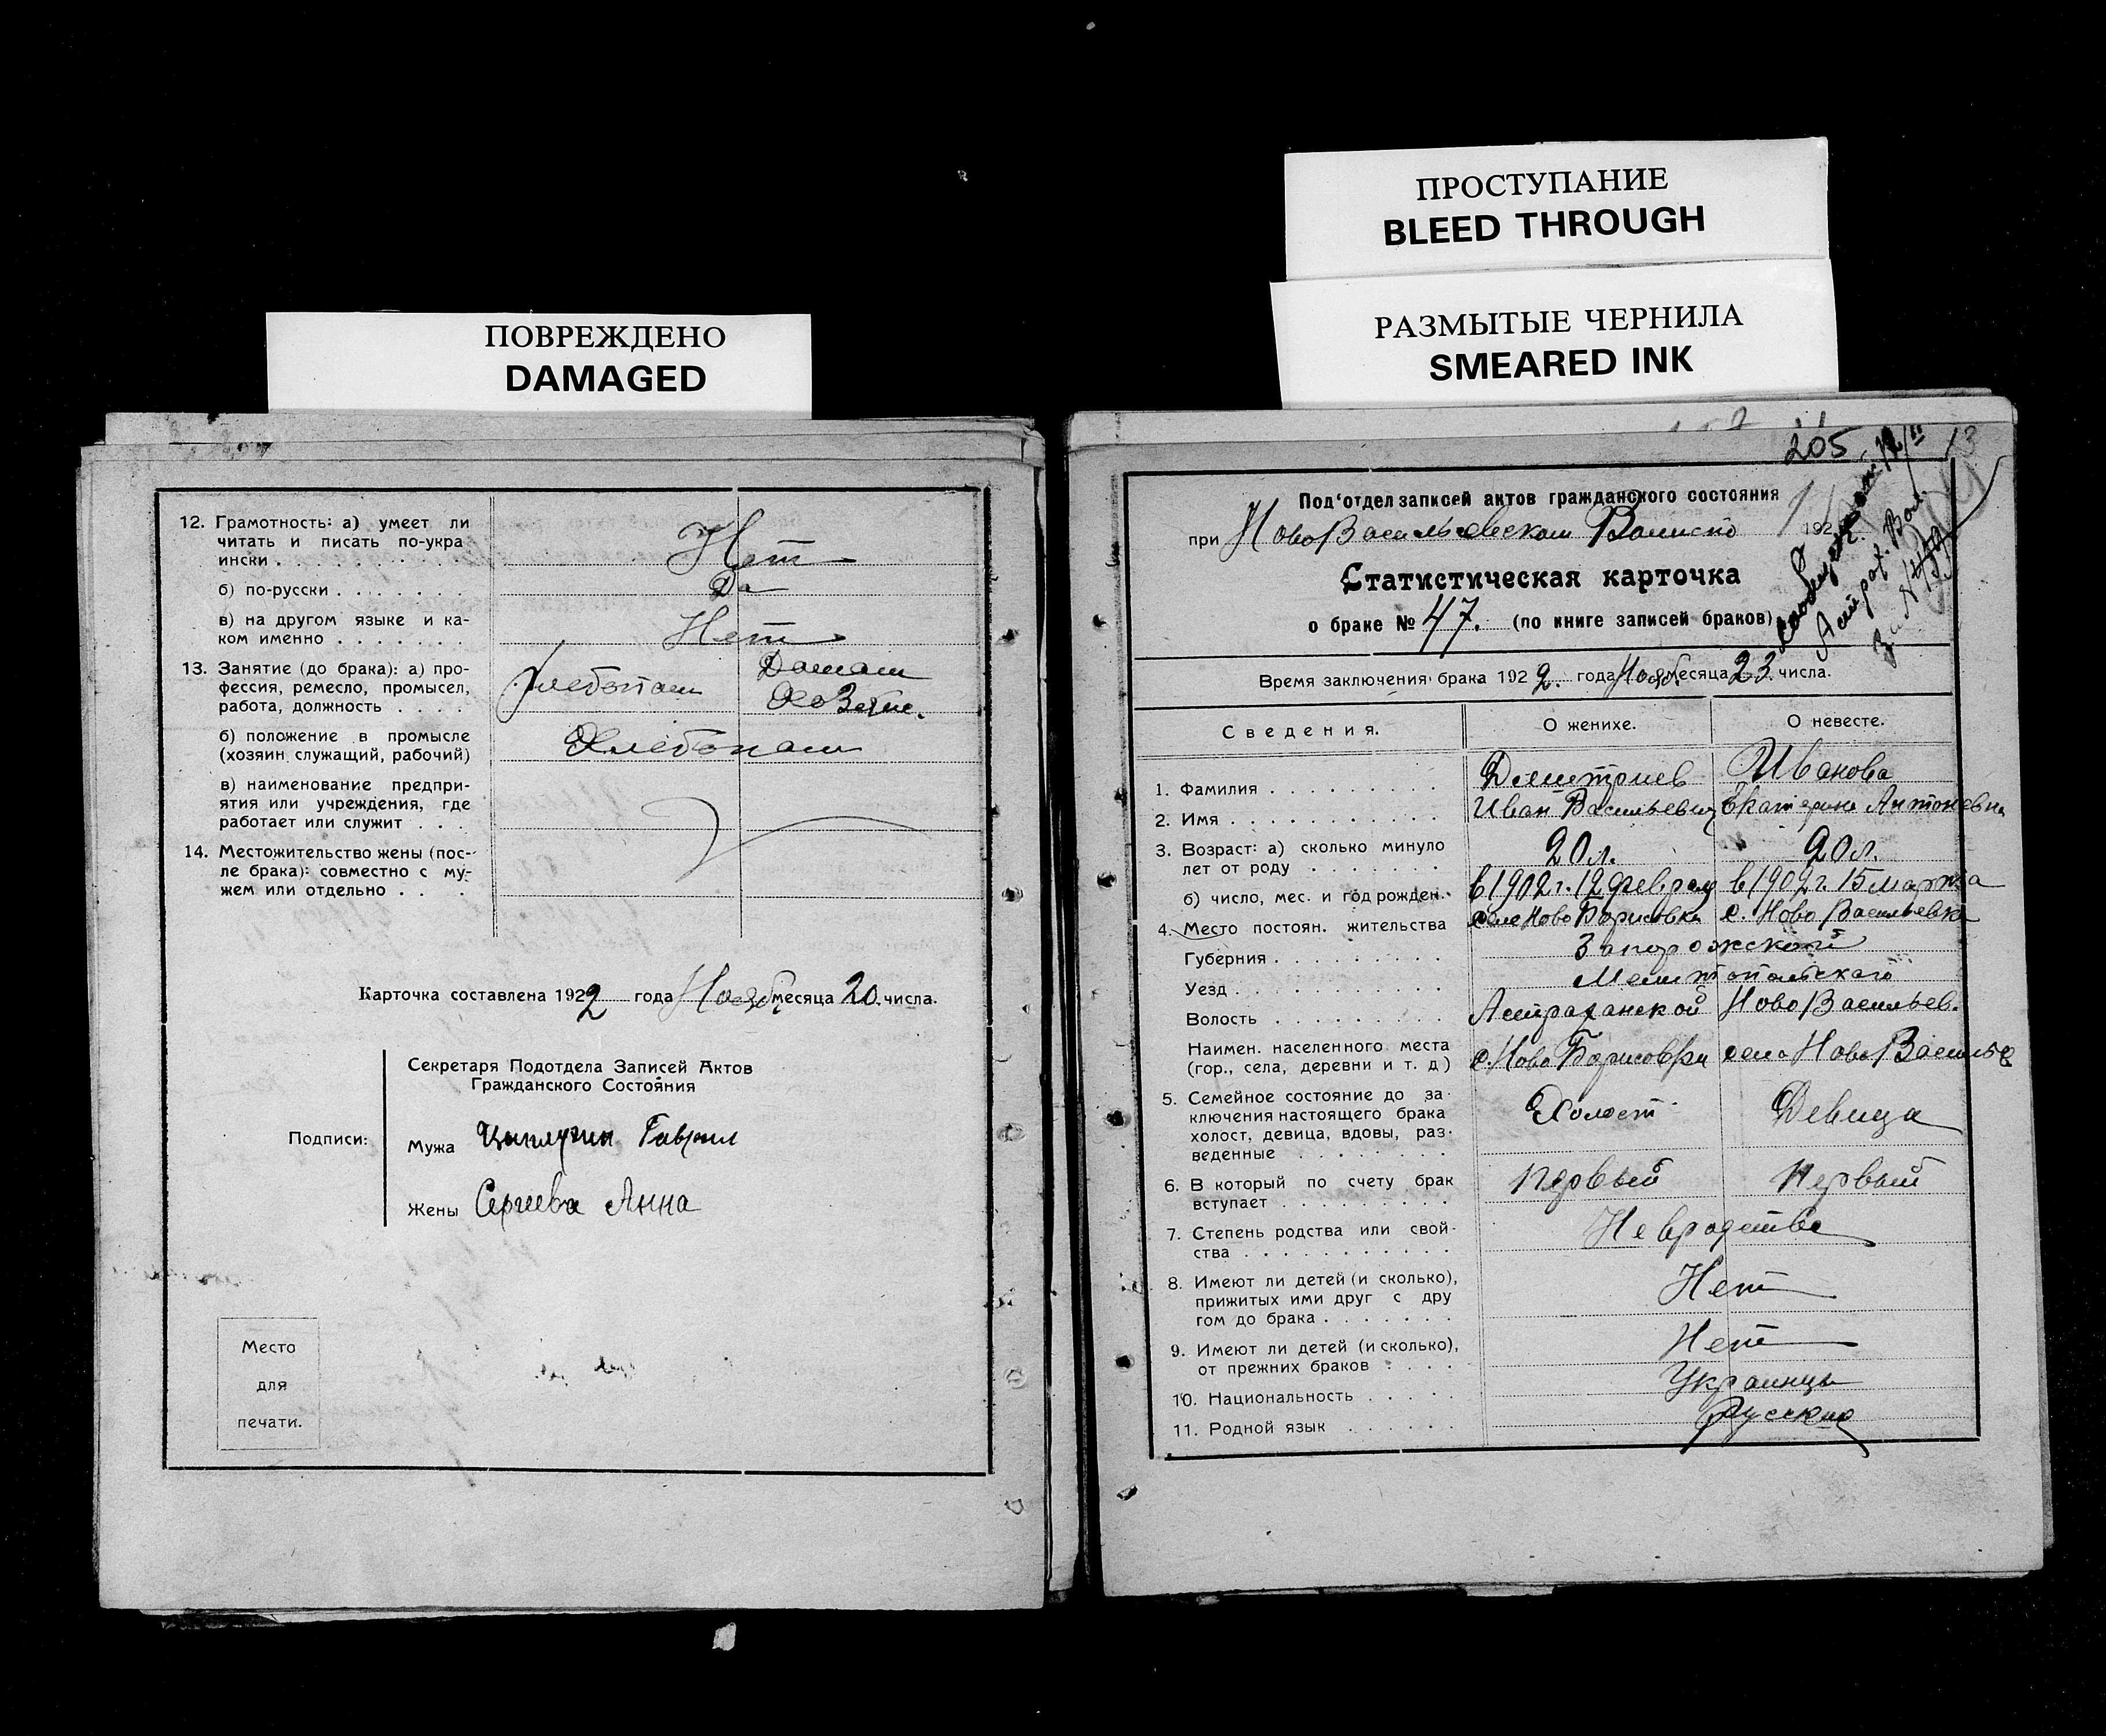 ПОВРЕЖДЕНО
DAMAGED
12. Грамотность: а) умеет ли
читать и писать по-укра
ински . . . . . . . . . . Нет
б) по-русски . . . . . . . Да
в) на другом языке и ка-
ком именно . . . . . . . Нет
13. Занятие (до брака): а) про-
фессия, ремесло, промысел,
работа, должность . . . . Хлебопаш Домаш Хозяйс.
б) положение в промысле
(хозяин служащий, рабочий) Хлебопаш
в) наименование предпри-
ятия или учреждения, где
работает или служит . . .
14. Местожительство жены (пос-
ле брака): совместно с му-
жем или отдельно . . .
Карточка составлена 1922 года Нояб месяца 20. числа.
Секретаря Подотдела Записей Актов
Гражданского Состояния
Подписи:
Мужа Гаврил
Жены Сергеева Анна
Место
для
печати.
ПРОСТУПАНИЕ
BLEED THROUGH
РАЗМЫТЫЕ ЧЕРНИЛА
SMEARED INK
205
13
Под‘отдел записей актов гражданского состояния
при НовоВасильевском Волиспо 192
Статистическая карточка
о браке № 47. (по книге записей браков)
Астрах. Вол.
Время заключения брака 1922. года Нояб. месяца 23. числа.
Сведения. О женихе. О невесте.
1. Фамилия . . . . . . . . . Дмитриев Иванова
2. Имя . . . . . . . . . . . Иван Васильевич Екатерина Антоневна
3. Возраст: а) сколько минуло
лет от роду . . . . . . . 20 л. 20 л.
б) число, мес. и год рожден. в 1902 г. 12 февраля в 1902 г. 15 марта
4. Место постоян. жительства селе Ново Борисовки с. Ново Васильевка
Губерния . . . . . . . . . Запорожской
Уезд . . . . . . . . . . . Мелитопольскаго
Волость . . . . . . . . . Астраханской Ново Васильев.
Наимен. населенного места
(гор., села, деревни и т. д) с. Ново Борисовки село Ново Василье
5. Семейное состояние до за-
ключения настоящего брака
холост, девица, вдовы, раз-
веденные . . . . . . . . Холост Девица
6. В который по счету брак
вступает . . . . . . . . . Первый Первый
7. Степень родства или свой-
ства . . . . . . . . . . . Не вродстве
8. Имеют ли детей (и сколько),
прижитых ими друг с дру
гом до брака . . . . . . . Нет
9. Имеют ли детей (и сколько),
от прежних браков . . . . Нет
10. Национальность . . . . . Украинцы
11. Родной язык . . . . . . Русский